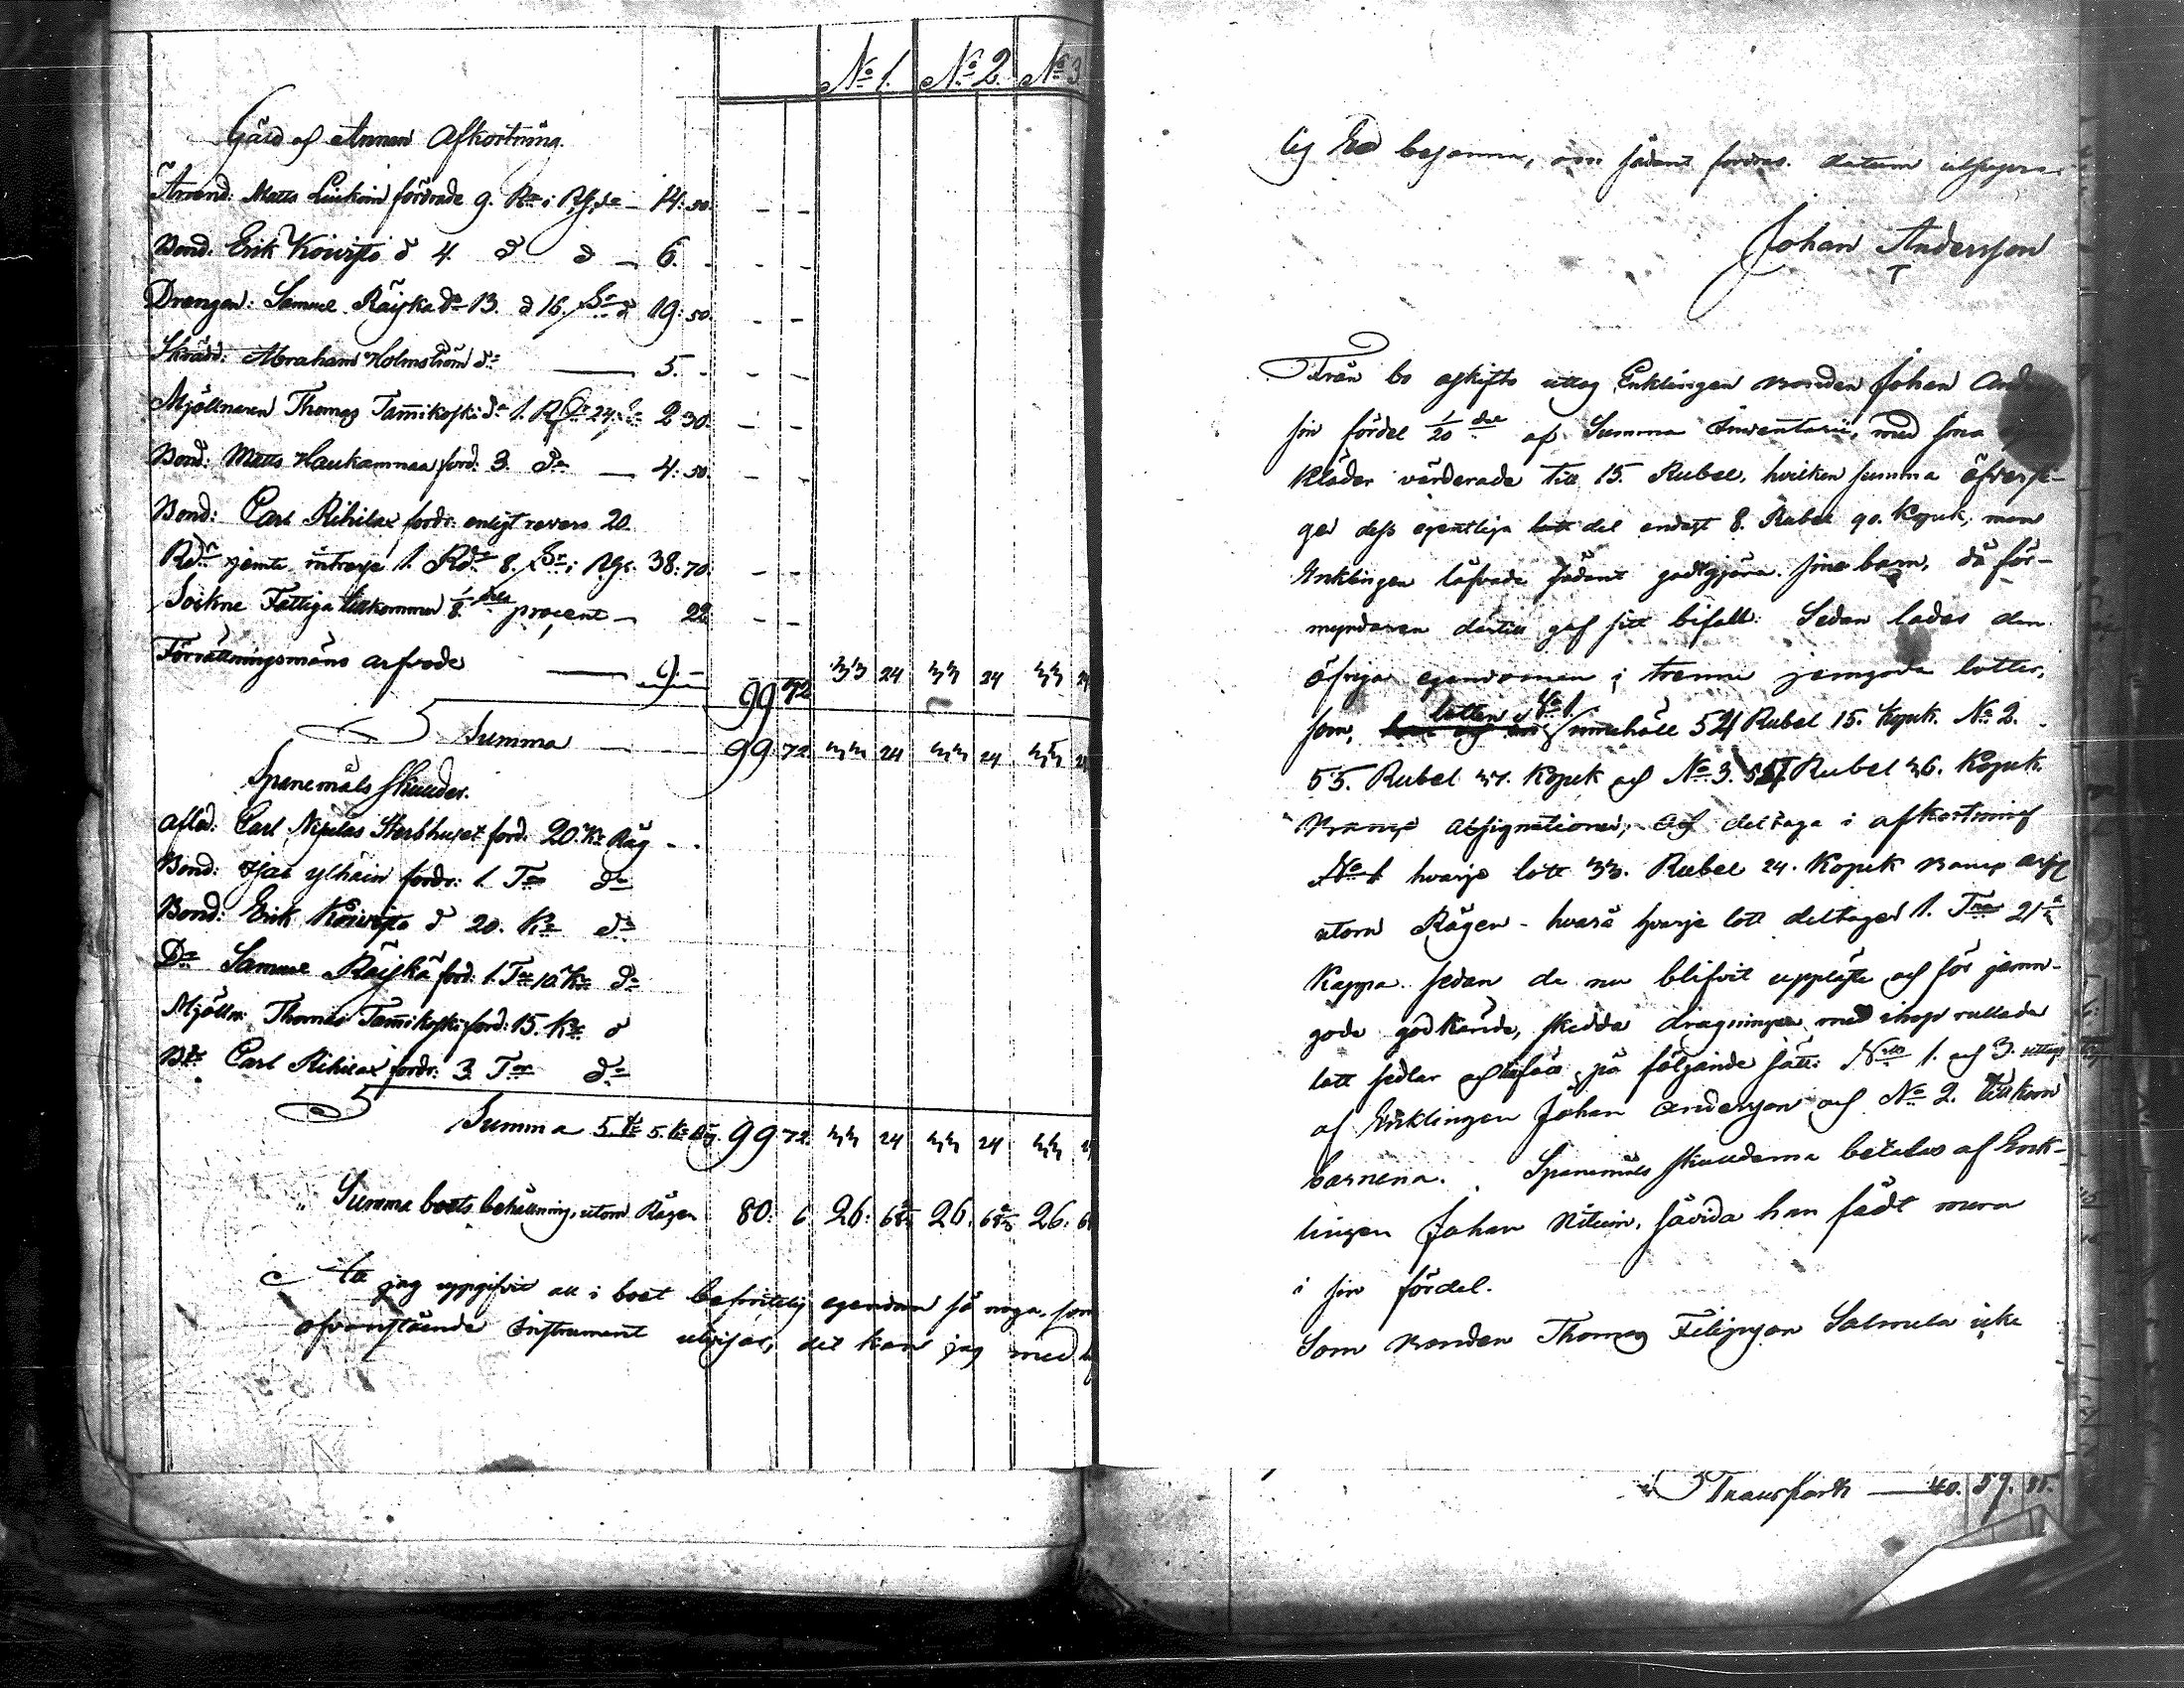 No 1. No 2. No 3.
Gäld af Annan Afkortning.
Arrend: Matts Liukoin fördrade 9. Rdr i Rgs dr – 14: 50.
Bond. Erik Koivisto d 4. d d – 6. -
Drängen: Samuel Räiskä dr 13. d 16. s. d 19: 50.
Skrädd: Abraham Holmström dr — 5. -
Mjöllnaren Thomas Tamikoski dr 1. R 24. 2 30.
Bond: Matts Haukanmaa ford. 3. dr — 4: 50.
Bond: Carl Rihilax fordr. enligt revers 20.
Rdr jemte intresse 1. Rdr 8. s. i Rgs. 38: 70.
Sockne Fattiga tillkommer 1/8 dels procent – 22
Förrättningsmäns arfvode — 9. – 99 72 33 24 33 24 33 24
Summa — 99. 72 33 24 33 24 33 24
Spanemåls Skulder.
afled. Carl Nipulas Sterbhuset ford. 20. Kr Råg - -
Bond: Isac ylhäin fordr: 1. Tr dr
Bond: Erik Koivisto d 20. Kr dr
Dr Samuel Räiskä ford: 1. Tr 10. Kr dr
Mjölln: Thomas Tamikoski ford: 15. Kr d
Bd Carl Rihilax fordr: 3. Tr dr
Summa 5. Tr 5. Kr Råg 99 72. 33 24 33 24 33 24
Summa boets behållning, utom Rågen 80: 6 26: 68 2/3 26. 68 2/3 26: 68
Att jag uppgifvit all i boet befintelig egendom så noga, som
ofvanstående Instrument utvisar, det kan jag med
lig Ed besanna, om sådant fordras. datum utsupra.
Johan Andersson
Från bo afskifts uttog Enklingen Bonden Johan
sin fördel 1/20 del af Summa Inventarii, med sina
Kläder värderade till 15. Rubel, hvilken summa öfversti-
ger dess egentliga del endast 8. Rubel 90. Kopek, men
Enklingen låfvade sådant godtgjöra sine barn, då för-
myndaren därtill gaf sitt bifall: Sedan lades den
öfriga egendomen i trenne jemngoda lotter,
som, lotten No 1. innehöll 54 Rubel 15. Kopek. No 2.
55. Rubel 37. Kopek och No 3. Rubel 36. Kopek.
Banco Assignationer, och deltaga i afkortning
hvarje lott 33. Rubel 24. Kopek Banco
utom Rågen - hvarå hvarje lott deltager 1. Tna 21
Kappa. sedan de nu blifvit uppläste och för jemn-
gode godkände, skedde dragningen med ihop rullade
lott sedlar och utföll på följande sätt: Nris 1. och 3. uttogs
af Enklingen Johan Andersson och No 2. tillkom
barnena. Spanemåls skulderna betalas af Enk-
lingen Johan Nituin, såvida han fådt mera
i sin fördel.
Som Bonden Thomas Filipsson Salmela icke
Transport — 40. 59. 81.